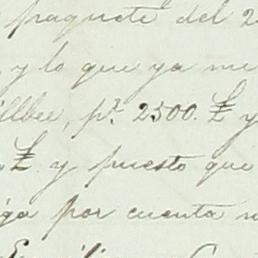 paquete del 2
y lo que ya me
llbee, pr. 2500. £ y
£ y puesto que
ga por cuenta